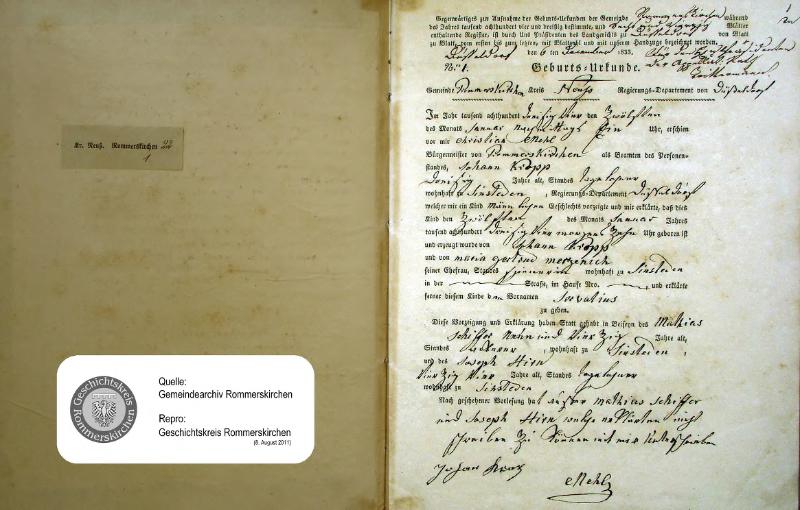 Kr. Neuß. Rommerskirchen
1
Geschichtskreis
Rommerskirchen
Quelle:
Gemeindearchiv Rommerskirchen
Repro:
Geschichtskreis Rommerskirchen
(8. August 2011)
Gegenwärtiges zur Aufnahme der Geburts-Urkunden der Gemeinde Rommerskirchen während
des Jahres tausend achthundert vier und dreißig bestimmte, und Blätter
enthaltende Register, ist durch Uns Präsidenten des Landgerichts zu Düsseldorf von Blatt
zu Blatt, vom ersten bis zum letzten, mit Blattzahl und mit unserm Handzuge bezeichnet worden.
Düsseldorf den 6 ten December 1833.
No. 1.
Geburts-Urkunde.
Gemeinde Rommerskirchen Kreis Neuß Regierungs-Departement von Düsseldorf
Im Jahr tausend achthundert dreißig vier den zwölften
des Monats Januar nachmittags Ein Uhr, erschien
vor mir Christian Mehl
Bürgermeister von Rommerskirchen als Beamten des Personen-
standes, Johann Kropp
dreißig Jahre alt, Standes tagelohner
wohnhaft zu Sinsteden, Regierungs-Departement Düsseldorf
welcher mir ein Kind männlichen Geschlechts vorzeigte und mir erklärte, daß dies
Kind den zwölften des Monats Januar Jahres
tausend achthundert dreißig vier morgens zehn Uhr geboren ist
und erzeugt wurde von Johann Kropp
und von maria gertrud merzenich
seiner Ehefrau, Standes wohnhaft zu Sinsteden
in der Straße, im Hause Nro. , und erklärte
ferner diesem Kinde den Vornamen Servatius
zu geben.
Diese Vorzeigung und Erklärung haben Statt gehabt in Beiseyn des Mathias
Schiffer Neun und vierzig Jahre alt,
Standes ackerer, wohnhaft zu Sinsteden,
und des Joseph Hien
vierzig vier Jahre alt, Standes tagelohner
wohnhaft zu Sinsteden
Nach geschehener Vorlesung hat außer Mathias Schiffer
und Joseph Hien welche erklärten nicht
schreiben zu können mit mir unterschrieben
Mehl